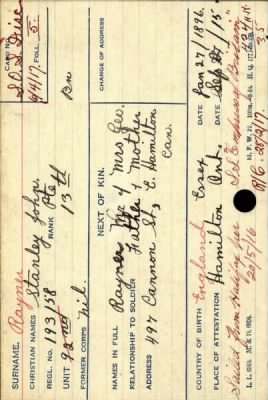 SURNAME. Rayner
CHRISTIAN NAMES Stanley John.
REGL. NO. 193158 RANK Pte
UNIT 92nd 13th Bn
FORMER CORPS Nil.
CARD NO.
S.O.S. Disc
FOLL. 5.
NEXT OF KIN.
NAMES IN FULL Rayner Mr & Mrs Geo.
RELATIONSHIP TO SOLDIER Father & Mother
ADDRESS 497 Cannon St, E. Hamilton
Can.
CHANGE OF ADDRESS
COUNTRY OF BIRTH England Essex DATE Jan 27/1896.
PLACE OF ATTESTATION Hamilton Ont. DATE Sep 27/15
20/5/16
R/C.